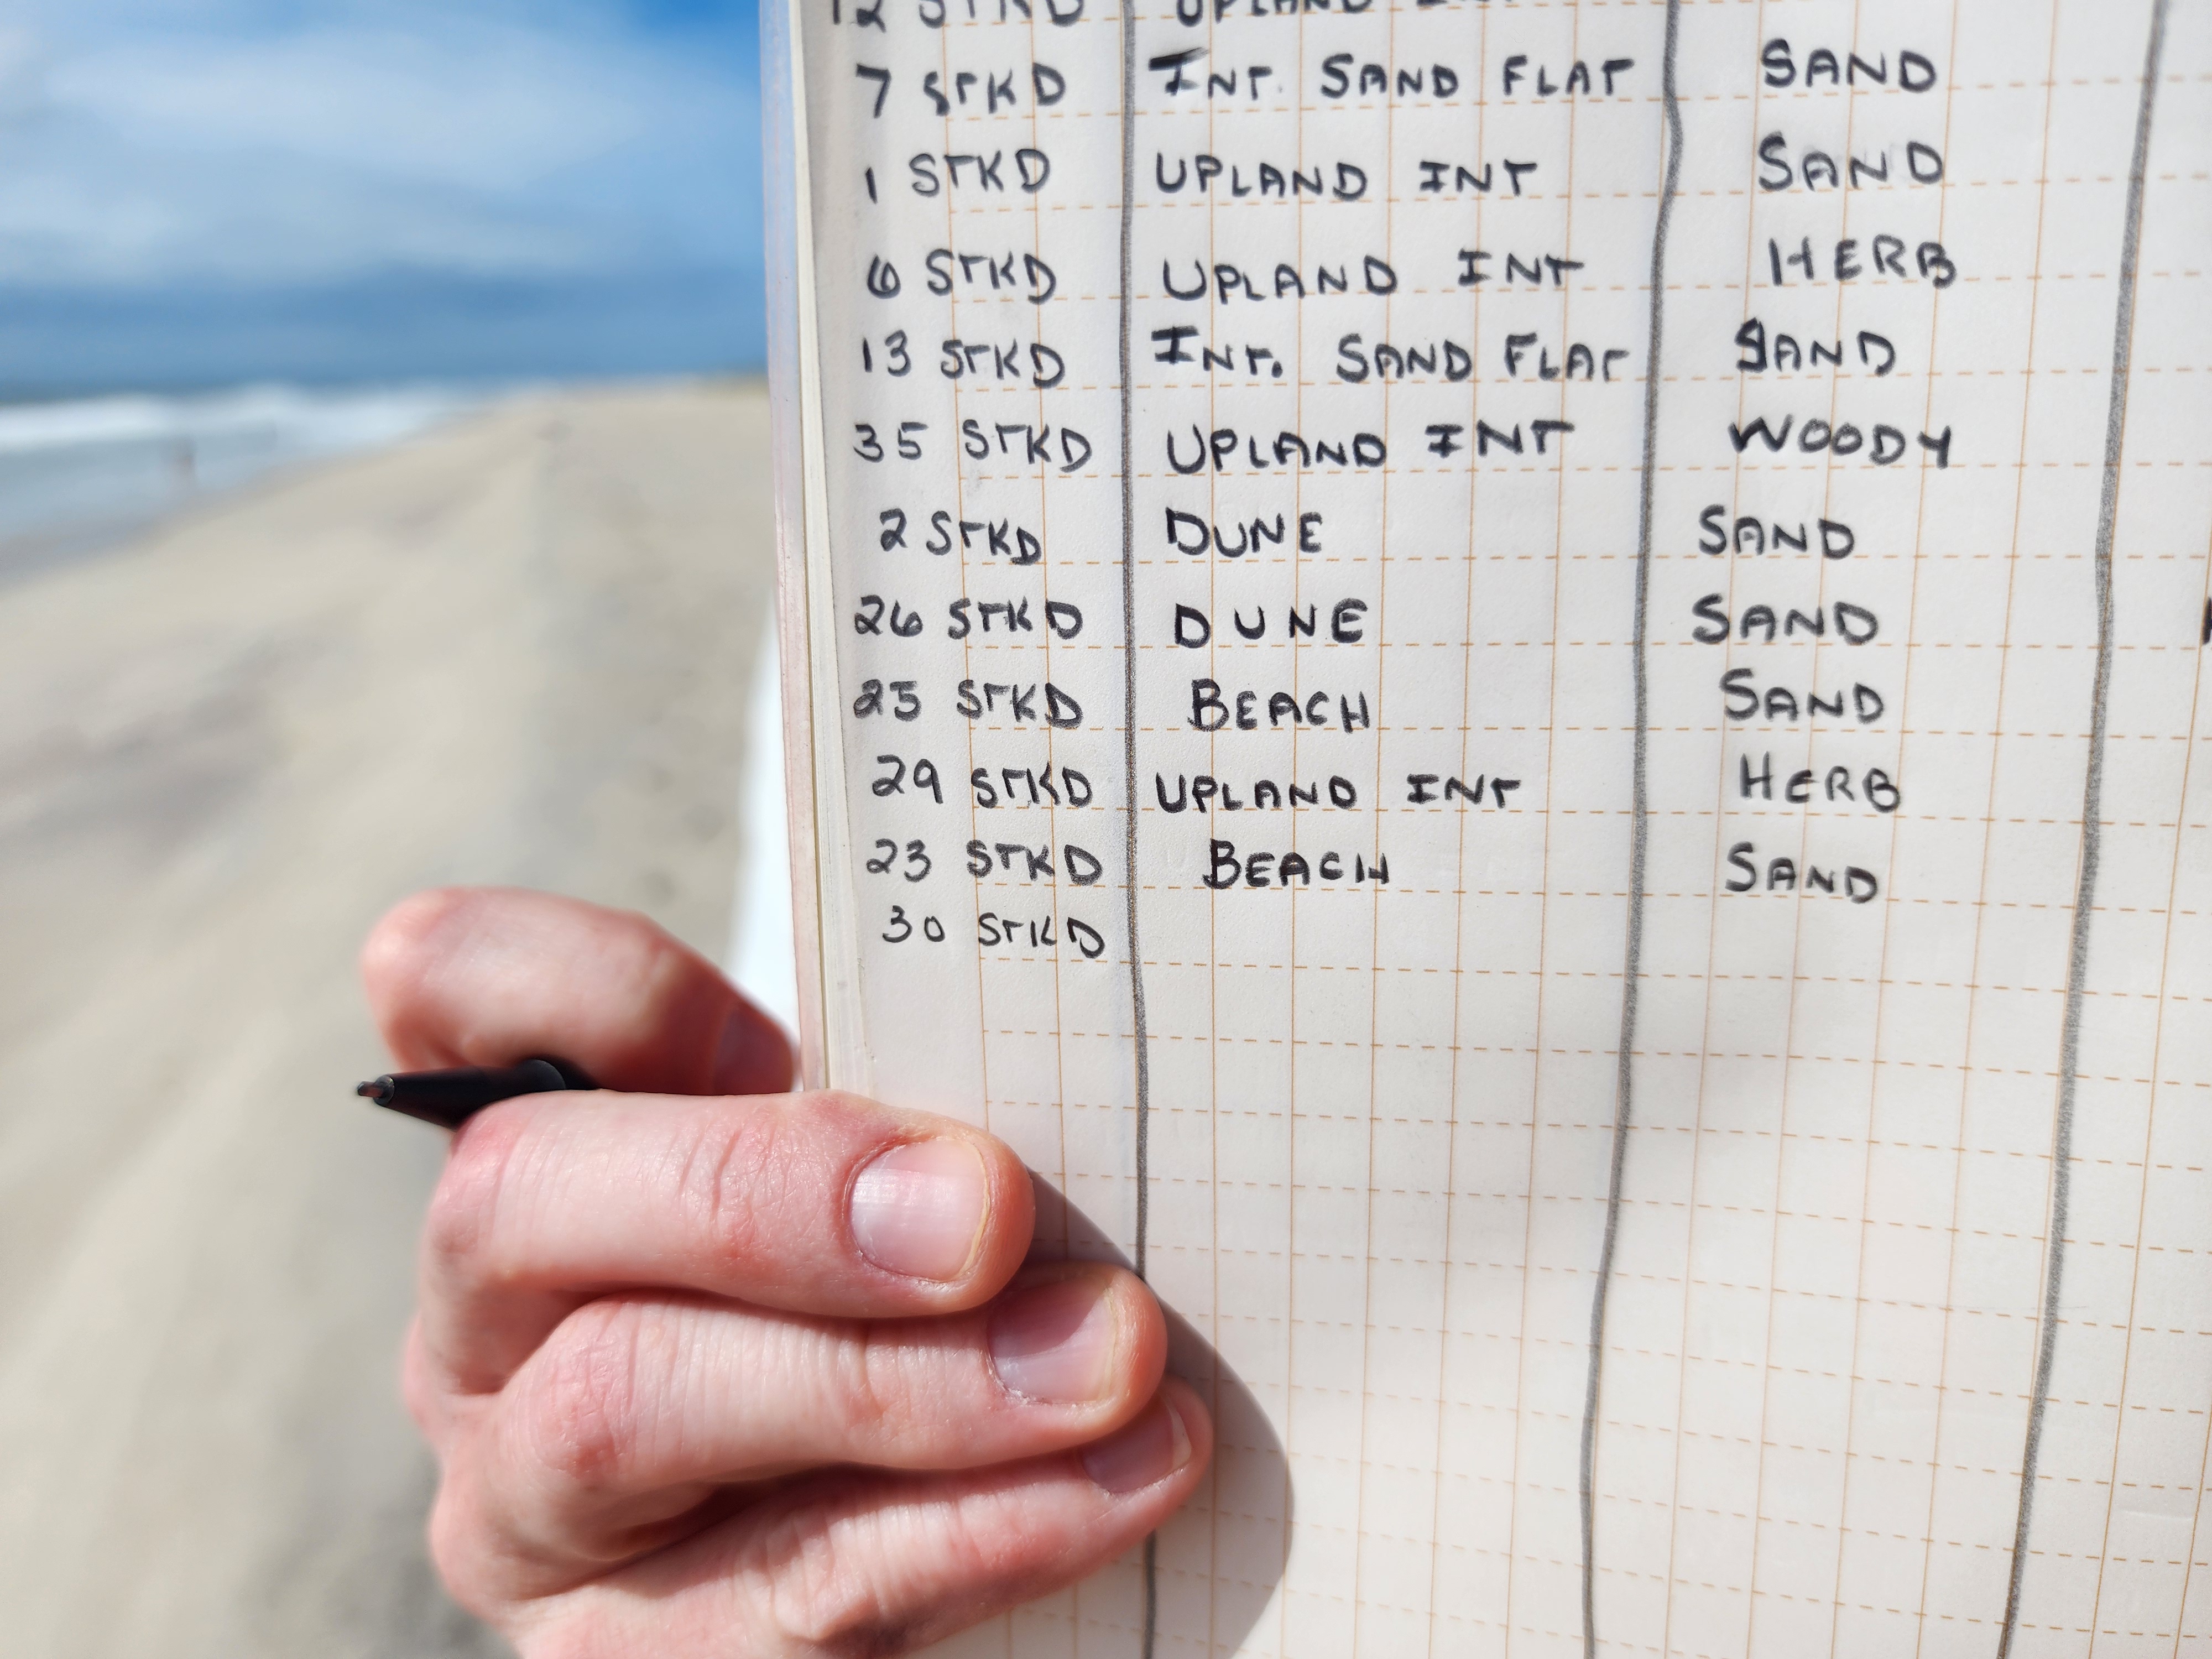 12 STKD UPLAND INT
7 STKD INT. SAND FLAT SAND
1 STKD UPLAND INT SAND
6 STKD UPLAND INT HERB
13 STKD INT. SAND FLAT SAND
35 STKD UPLAND INT WOODY
2 STKD DUNE SAND
26 STKD DUNE SAND
25 STKD BEACH SAND
29 STKD UPLAND INT HERB
23 STKD BEACH SAND
30 STKD